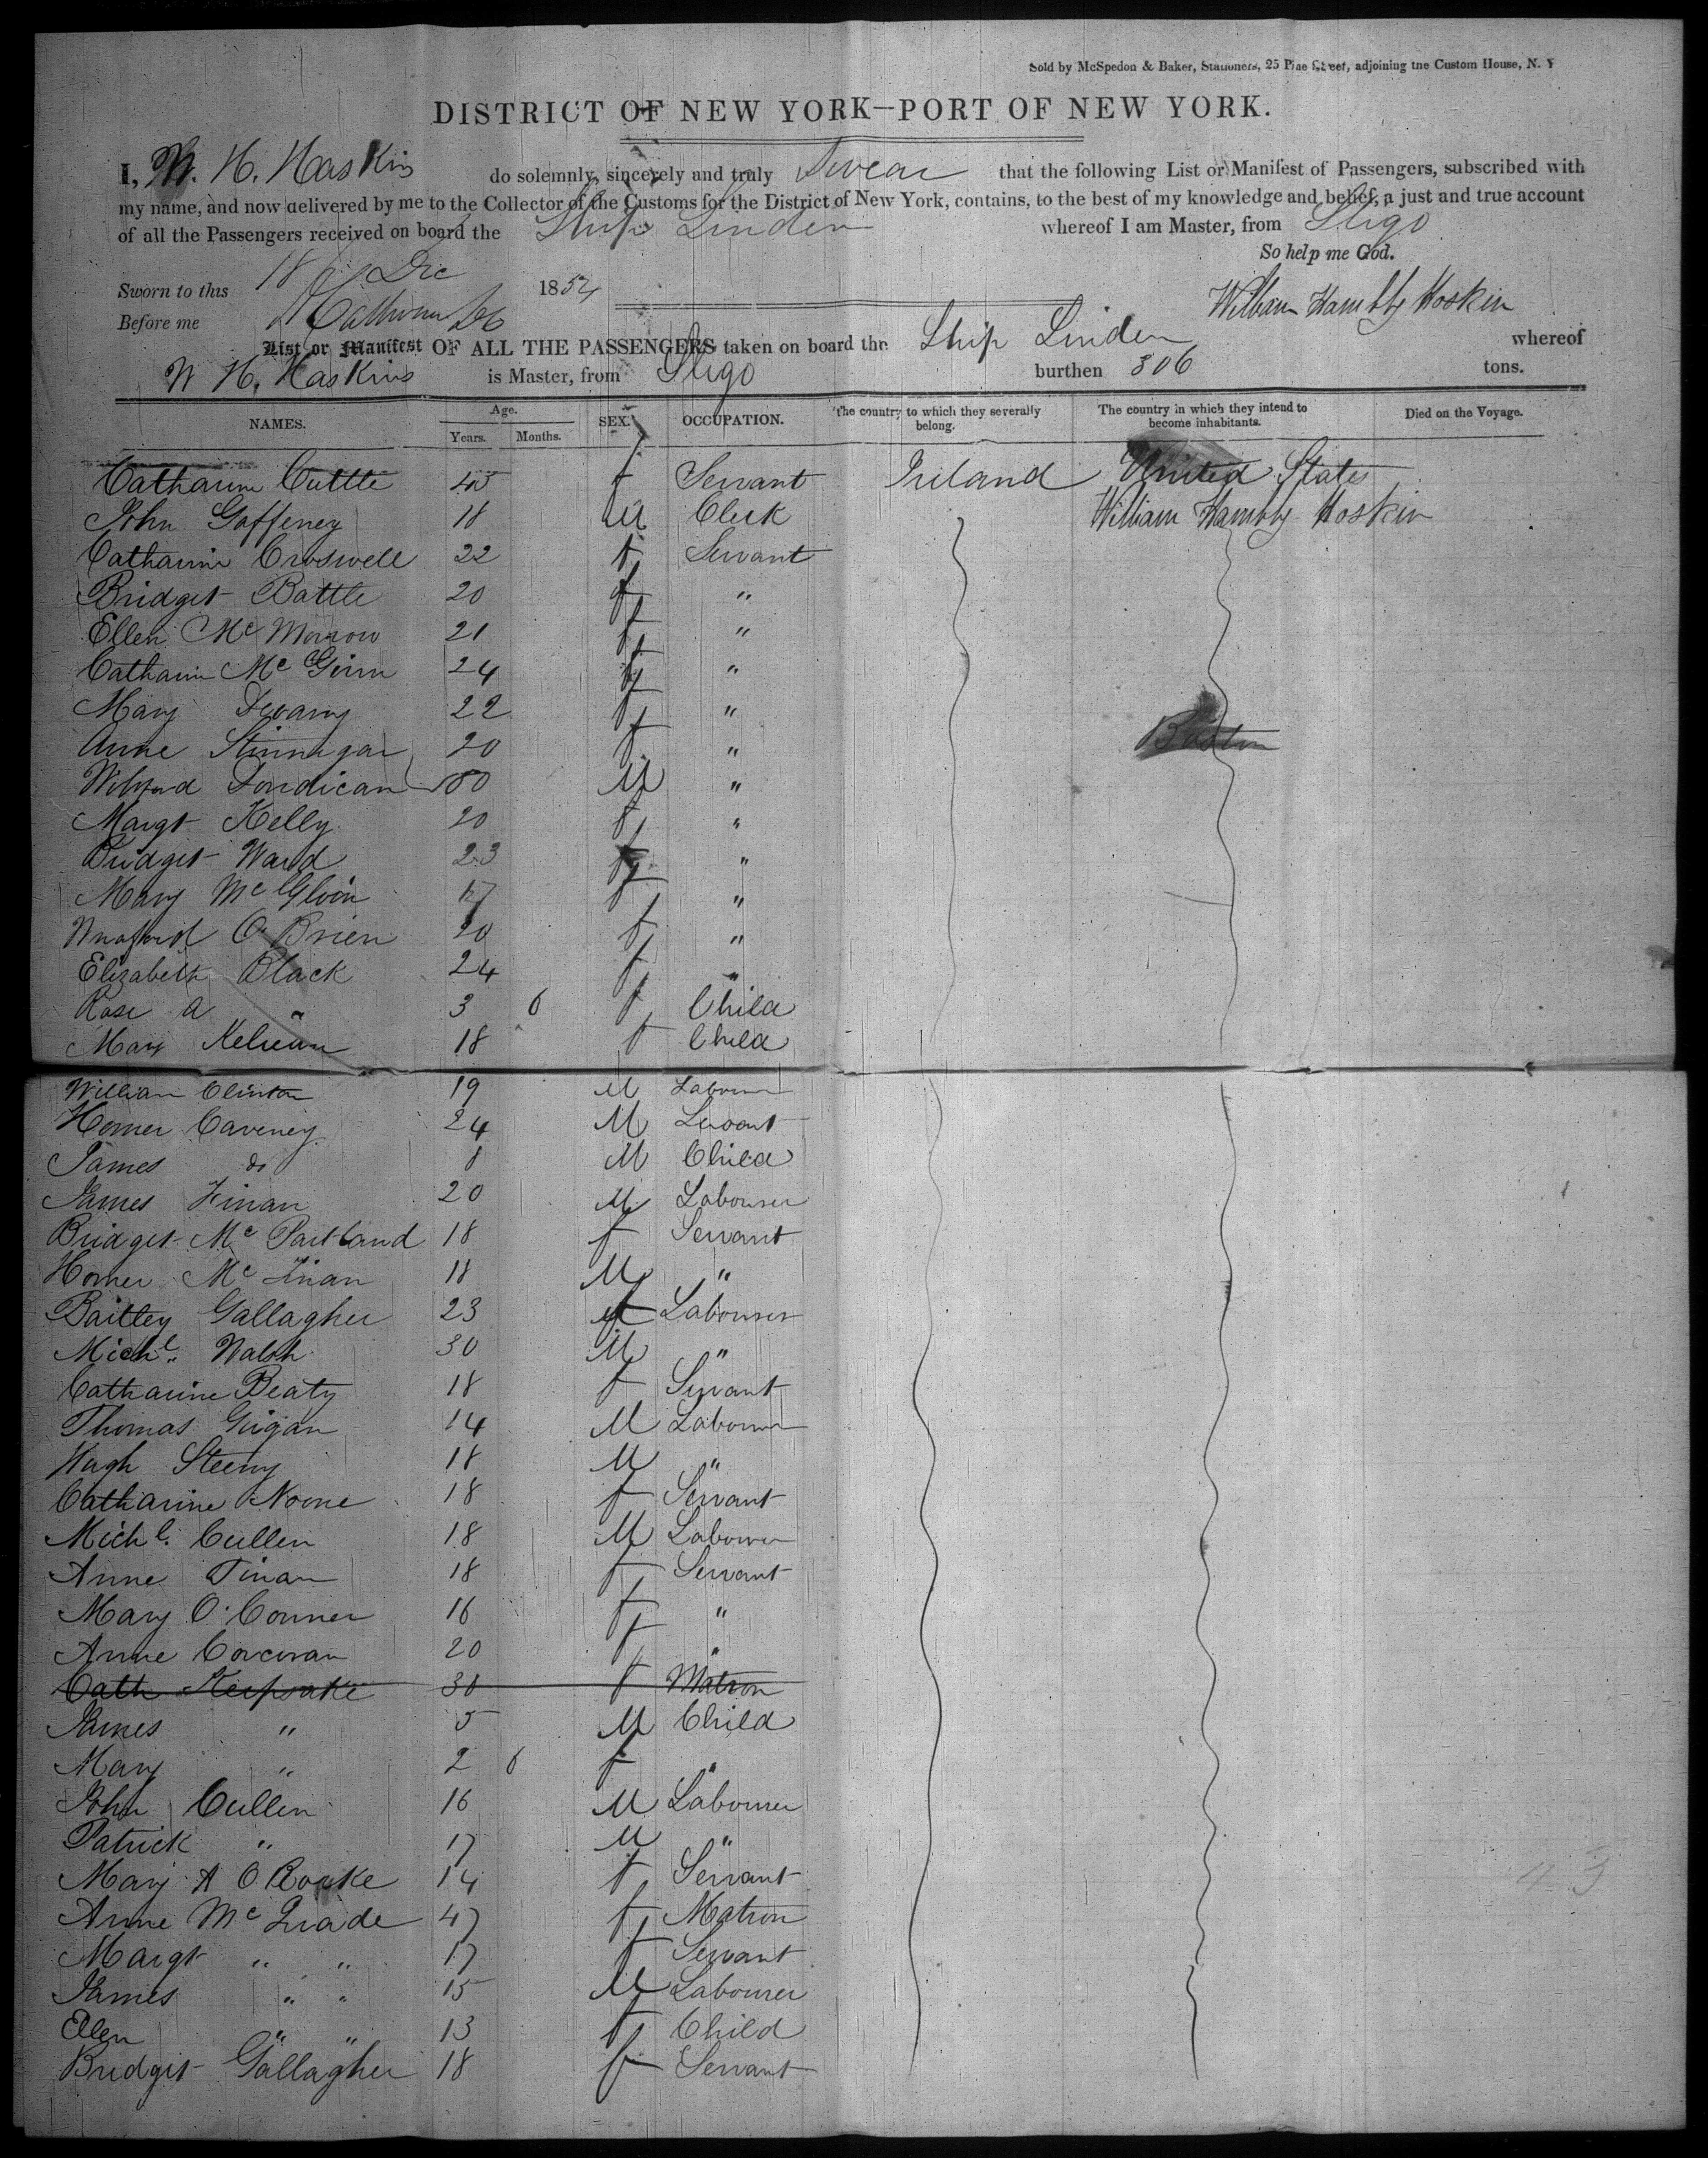 Sold by McSpedon & Baker, Stationers, 25 Pine Street, adjoining the Custom House, N. Y
DISTRICT OF NEW YORK—PORT OF NEW YORK.
I, W. H. Haskins do solemnly, sincerely and truly Swear that the following List or Manifest of Passengers, subscribed with
my name, and now delivered by me to the Collector of the Customs for the District of New York, contains, to the best of my knowledge and belief, a just and true account
of all the Passengers received on board the Ship Linden whereof I am Master, from Sligo
So help me God.
Sworn to this 18 Dec 1854
William Hambly Hoskin
Before me
List or Manifest OF ALL THE PASSENGERS taken on board the Ship Linden whereof
W H. Haskins is Master, from Sligo burthen 306 tons.
NAMES. Age. Years. Months. SEX. OCCUPATION. The country to which they severally belong. The country in which they intend to become inhabitants. Died on the Voyage.
Catharine Cuttle 45 f Servant Ireland United States
John Gaffeney 18 M Clerk William Hambly Hoskin
Catharine Croswell 22 f Servant
Bridget Battle 20 f "
Ellen Mc Morrow 21 f "
Catharin Mc Ginn 24 f "
Mary Devany 22 f "
Anne Finnegan 20 f "
Boston
Dondican M "
Margt Kelly 20 f "
Bridget Ward 23 f "
Mary Mc Gloin 17 f "
O'Brien 20 f "
Elizabeth Black 24 f "
Rose A " 3 6 f Child
Mary 18 f Child
William Clinton 19 M Labourer
Homer Caveney 24 M Servant
James do 8 M Child
James Finan 20 M Labourer
Bridget Mc Partland 18 f Servant
Homer Mc Finan 18 M "
Baitley Gallagher 23 Labourer
Michl. Walsh 30 M "
Catharine Beaty 18 f Servant
Thomas Guigan 14 M Labourer
Hugh Steeny 18 M "
Catharine Noone 18 f Servant
Michl. Cullen 18 M Labourer
Anne Finan 18 f Servant
Mary O'Conner 16 f "
Anne Corcoran 20 f "
Cath Keepsake 30 f Matron
James " 5 M Child
Mary " 2 6 f "
John Cullen 16 M Labourer
Patrick " 17 M "
Mary A O Rorke 14 f Servant
Anne Mc Quade 47 f Matron
Margt " " 17 f Servant
James " " 15 M Labourer
Ellen " " 13 f Child
Bridget Gallagher 18 f Servant
43